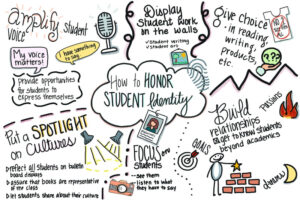 amplify student
voice
My voice
matters!
I have
something to
say
provide opportunities
for students to
express themselves
Display
student work on
the walls
student writing
student art
give choice
in reading,
writing,
products,
etc.
How to HONOR
STUDENT Identity
Put a SPOTLIGHT
on Cultures
reflect all students on bulletin
board displays
assure that books are representative
of the class
let students share about their culture
FOCUS on
Students
see them
listen to what
they have to say
Build
relationships
get to know students
beyond academics
GOALS
PASSIONS
dreams